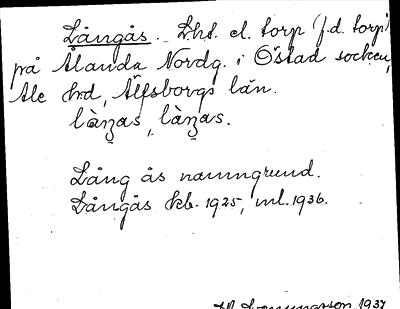 Långås. Lht. el. torp (f.d. torp)
på Ålanda Nordg. i Östad socken,
Ale hrd, Älfsborgs län.
làŋas, làŋas.
Lång ås namngrund.
Långås kb. 1925, ml. 1936.
1937